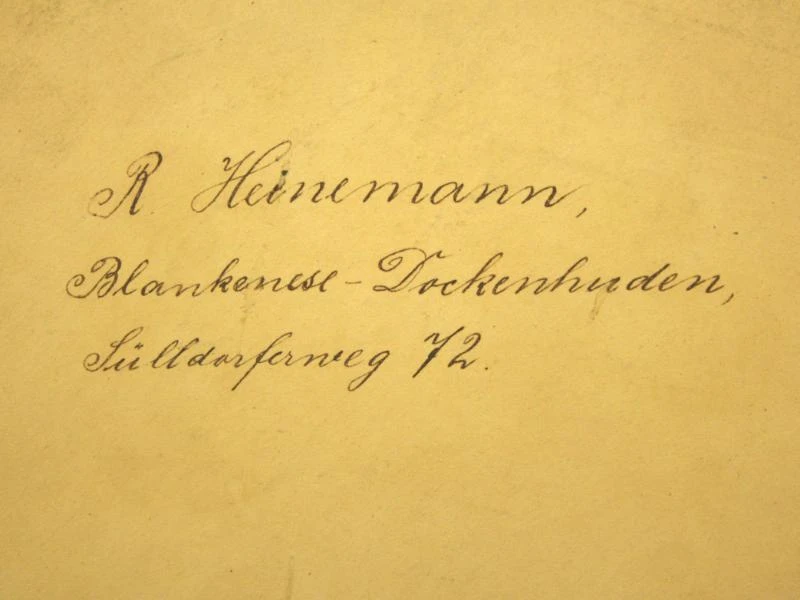 R. Heinemann,
Blankenese-Dockenhuden,
Sülldorferweg 72.